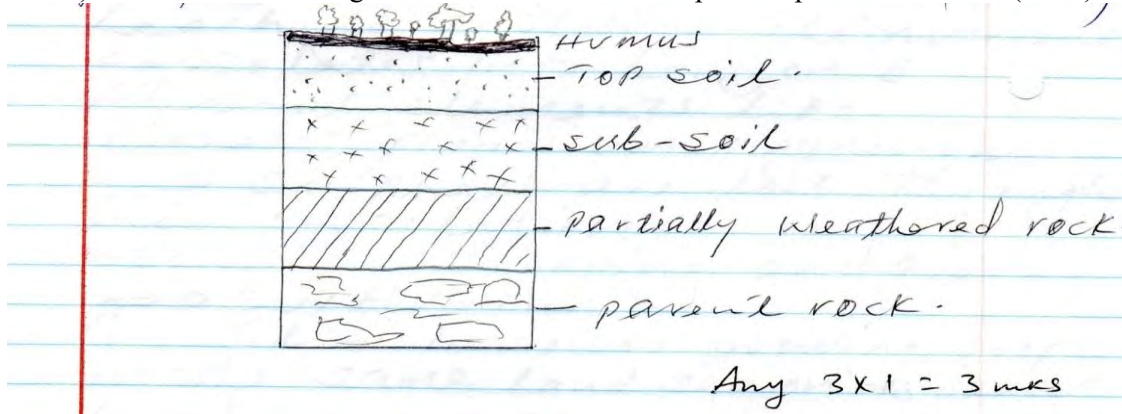 Humus
Top soil.
sub-soil
partially weathered rock
parent rock.
Any 3 x 1 = 3 mks